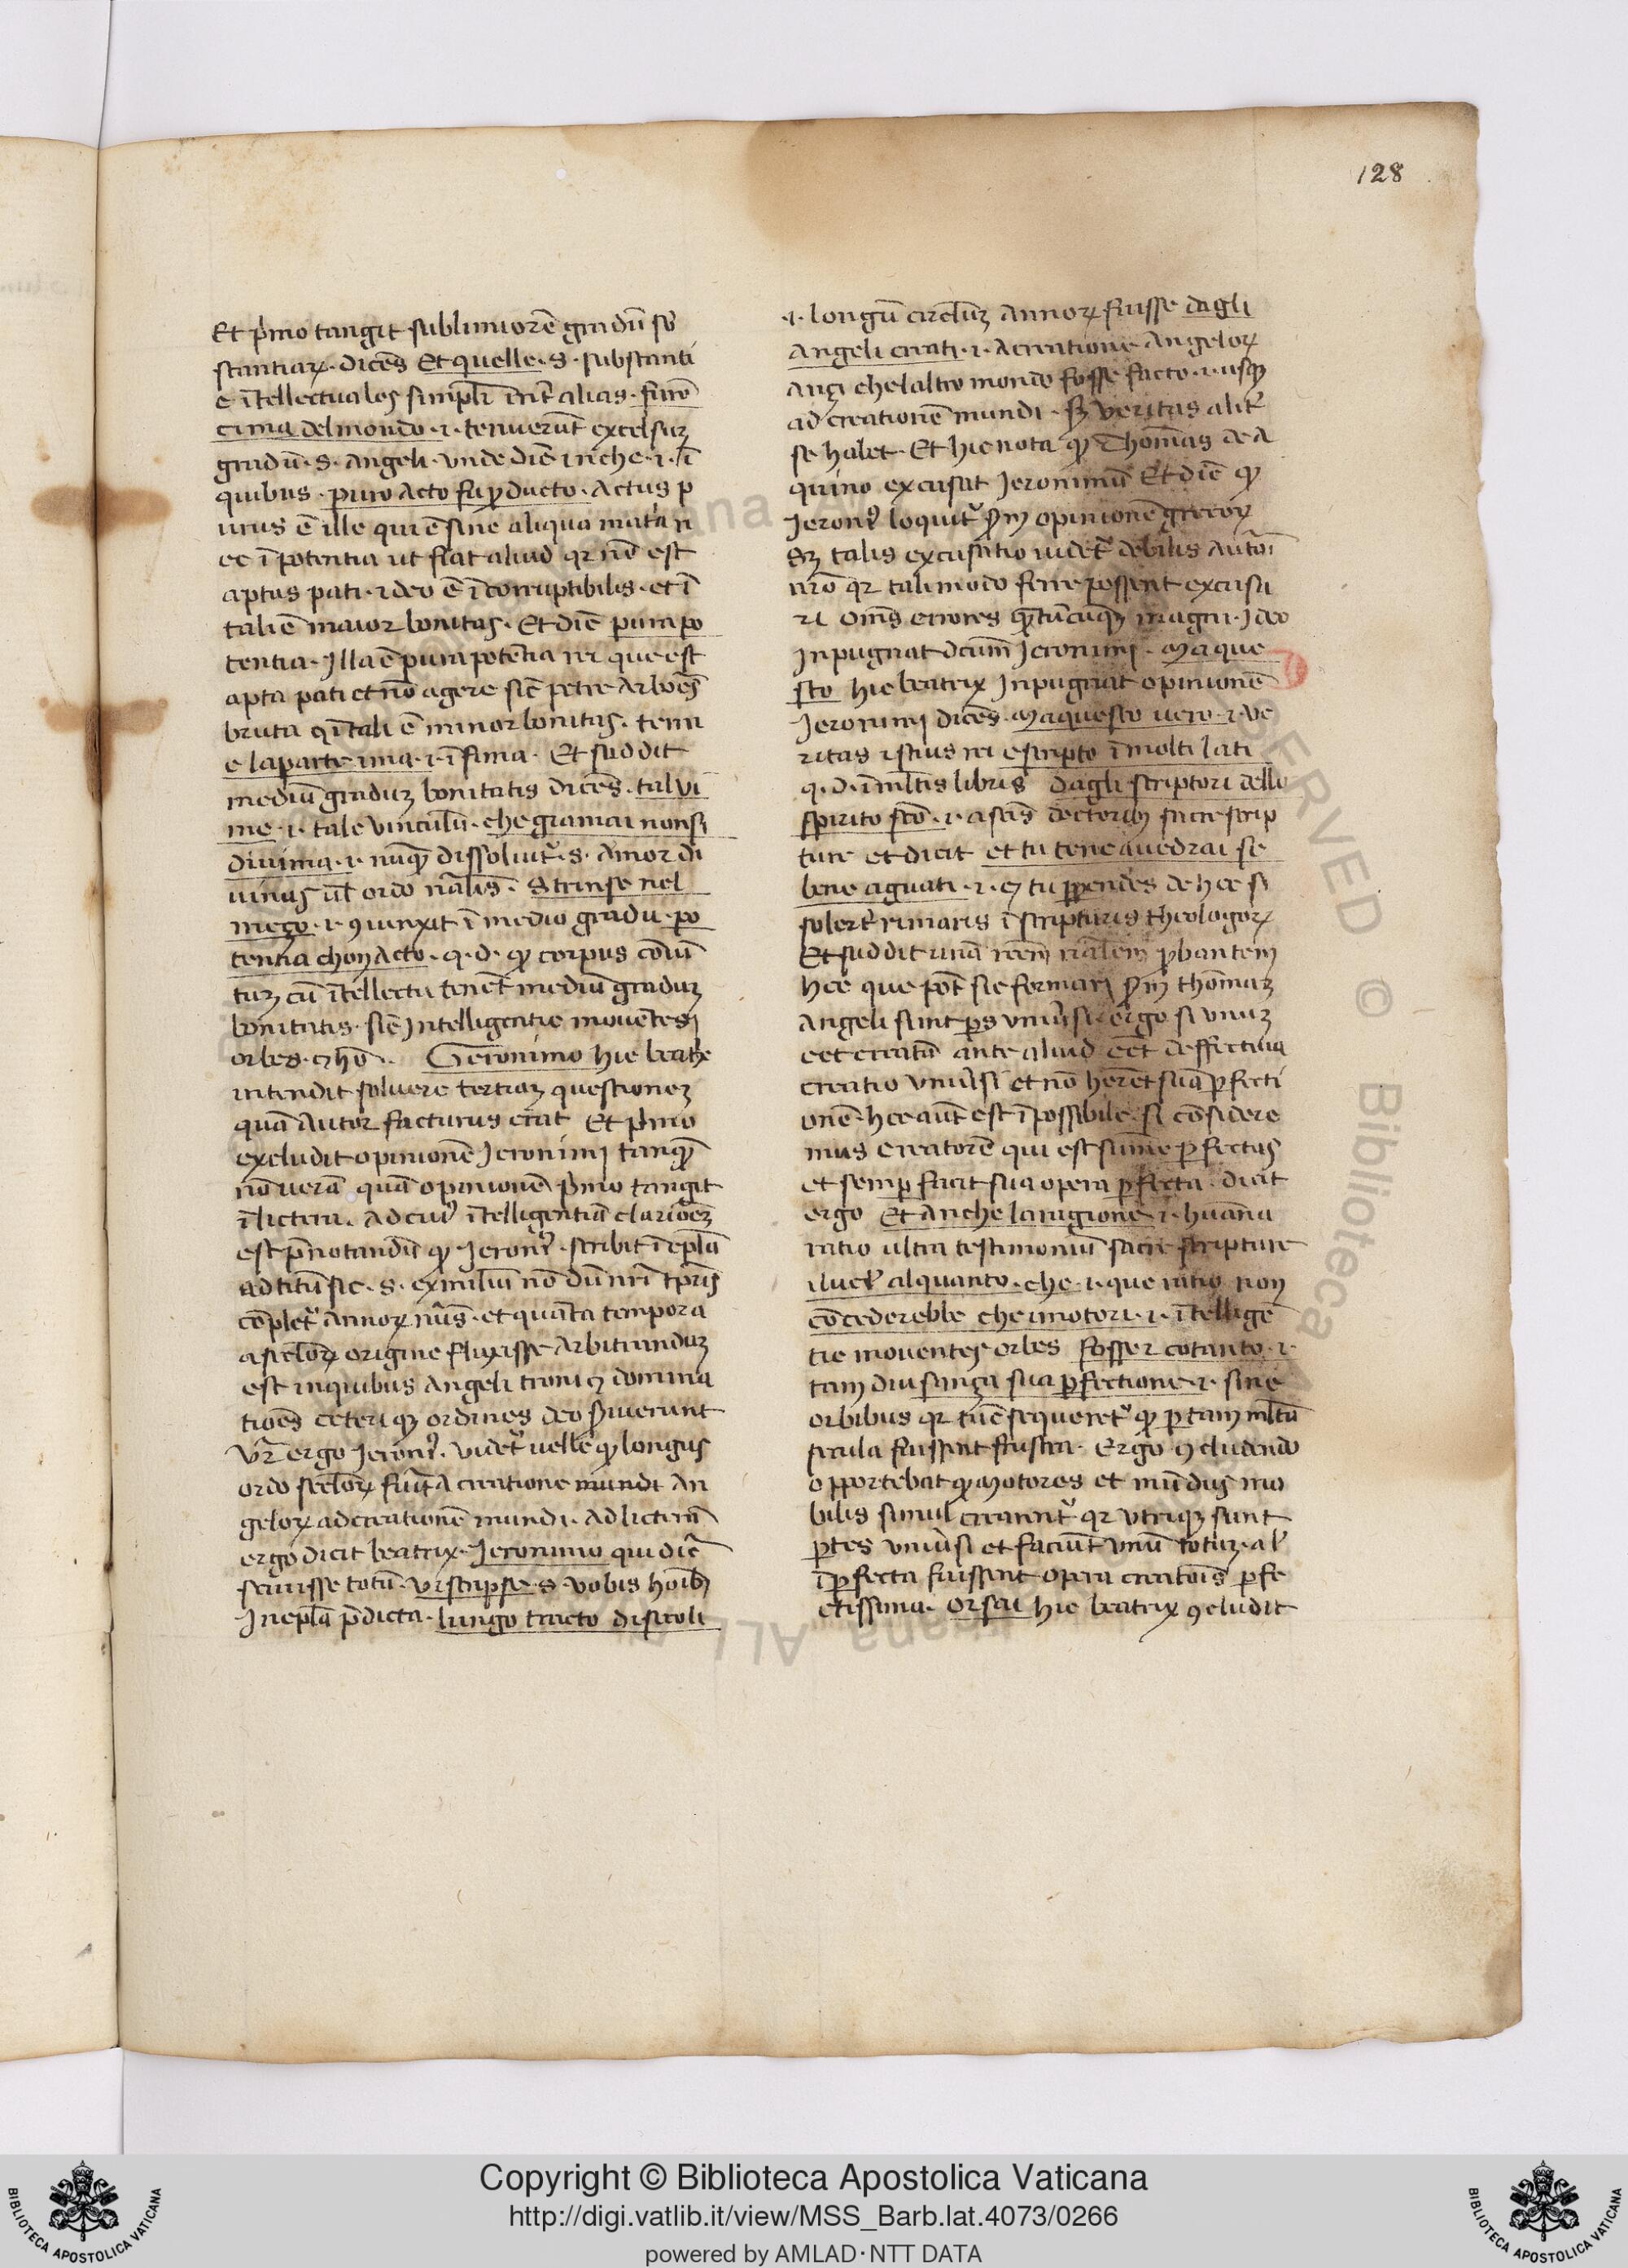 128
Et p͛mo tangit sublimiorē gradū sb̄
stantiaꝝ · dicēs Et quelle · S · substanti
e ītellectuales simpl̄r īnt̄ alias · furō
cima del mondo · i · tenuerūt excelsuꝫ
gradū · S · angeli · vnde diē i ūche · i · ī
quibus · puro acto fu ꝓducto · Actus p
urus ē ille qui ē sine aliqua mat̄ia n
ec ī potentia ut fiat aliud qꝛ nō est
aptus pati · ideo ē īcorruptibilis · et ī
tali ē maior bonitas · Et diē pura po
tentia · Illa ē pura potētia rei que est
apta pati et nō agere sic̄ petre arbōes
bruta q̄ ī tali ē minor bonitas · tenn
e la parte ima · i · īfima · Et suddit
mediū graduꝫ bonitatis dicēs · tal vi
me · i · tale vinculū · che gramai nonsi
diuima · i · nūqꝫ dissoluit̄ · S · amor di
uinus ul̄ ordo nālis · Strinse nel
meço · i · ꝯiunxit ī medio gradu · po
tentia chon acto · q · d · qꝫ corpus cōiū
tuꝫ cū ītellectu tenet mediū graduꝫ
bonitatis · sic̄ Intelligentie mouētes
orbes · ⁊ hō · Geronimo hic beatx̄
intendit soluere tertiaꝫ questioneꝫ
quā autor facturus erat Et p͛mo
excludit opinionē Jeronimi tanqꝫ
nō uerā quā opinionē p͛mo tangit
ī lictera · ad cui͛ ītelligentiā clarioreꝫ
est p̄notandū qꝫ Jeron͛ · scribit ī epl̄a
ad titū sic · S · ex miliū nō dū nr̄i tp̄ris
cōplet̄ annoꝝ nūs · et quanta tempora
a seclōꝝ origine fluxisse arbitranduꝫ
est in quibus angeli troni ⁊ domina
tiōes ceteri qꝫ ordines deo s̄uierunt
Vr̄ ergo Jeron͛ · videt̄ uelle qꝫ longus
ordo seclōꝝ fuit a creatione mundi an
geloꝝ ad creationē mundi · ad licterā
ergo dicit beatrix · Jeronimo qui dic̄
sciuisse totū · vi scripse · S · vobis hoībꝫ
In epl̄a p̄dicta · lungo tracto di secoli
· i · longū circl̄uꝫ annoꝝ fuisse dagli
angeli creati · i · a creatione angeloꝝ
anꝫi chelaltro mondo fosse facto · i · usqꝫ
ad creationē mundi · Sꝫ veritas alit̄
se habet · Et hic nota qꝫ Thomas de a
quino excusat Jeronimū Et diē qꝫ
Jeron͛ loquit̄ ẜm opinionē grecoꝝ
Sꝫ talis excusatio uidet̄ debilis autōi
nr̄o qꝛ tali modo fere possent excusa
ri oīns errores qꝫtūcūqꝫ magni · Ideo
Inpugnat dcūm Jeronimi · Ma que
sto hic beatrix Inpugnat opinionē
Jeronimi dicēs · Ma questo uero · i · ve
ritas istius rei e scripto ī molti lati
q · d · ī mltis libris dagli scriptori dello
spirito sco̅ · i · a scīs doctoribꝫ sacre scrip
ture et dicit et tu tene auedrai se
bene aguati · i · ⁊ tu ꝑpendes de hee si
solert̄ rimaris ī scripturis theologoꝝ
Et suddit unā rōem nālem ꝓbantem
hee que pōt sic formari ẜm thōmaꝫ
Angeli sunt ꝑs vniūsi ergo si vnuꝫ
eet creatū ante aliud eēt deffectiua
creatio vniūsi et nō heret suā ꝑfecti
onē · hee aut est īpossibile si cōsidere
mus creatorē qui est sūme ꝑfectus
et semꝑ facit sua opera ꝑfecta · dicit
ergo Et anche la ragione · i · huāna
ratio ultra testimoniū sacre scripture
iluet̄ alquanto · che · i · que ratio non
cōcederebbe che i motori · i · ītellige
tie mouentes orbes fosser cotanto · i ·
tam diu sança sua ꝑfectione · i · sine
orbibus qꝛ tūc sequeret̄ qꝫ ꝑ tam mltā
secula fuissent frustra · Ergo ꝯcludendo
opportebat qꝫ motores et mūdus mo
bilis simul crearent̄ qꝛ vtriqꝫ sunt
ꝑtes vniūsi et faciūt vnū totuꝫ · al̄
īꝑfecta fuissent opera creatoīs ꝑfe
ctissima · Or sai hic beatrix ꝯcludit
Copyright © Biblioteca Apostolica Vaticana
http://digi.vatlib.it/view/MSS_Barb.lat.4073/0266
powered by AMLAD·NTT DATA